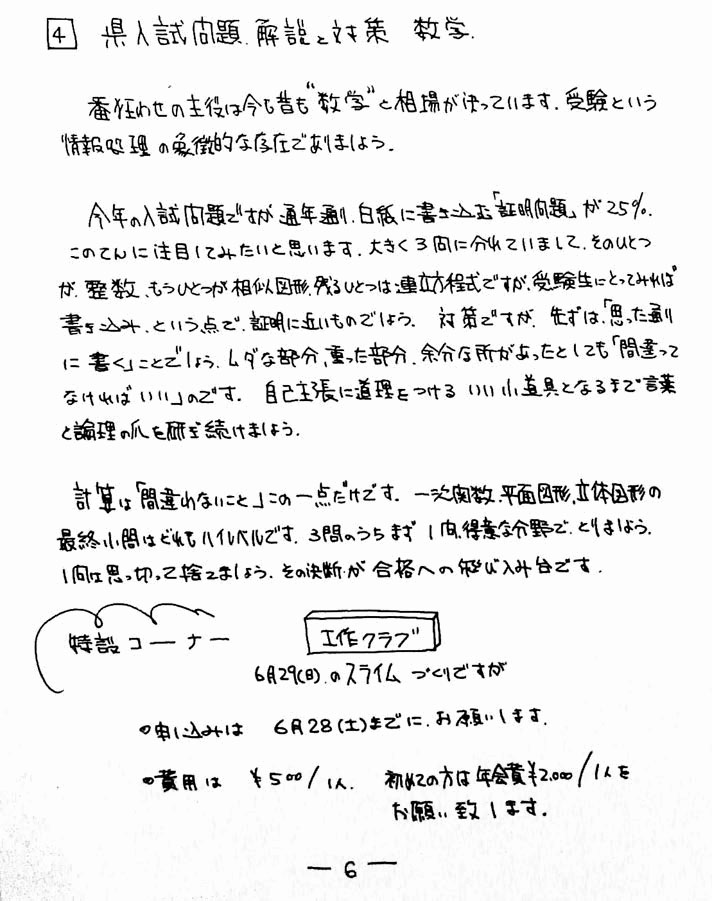 4 県入試問題.解説と対策 数学.
番狂わせの主役は今も昔も"数学"と相場が決っています.受験という
情報処理の象徴的な存在でありましょう.
今年の入試問題ですが通年通り.白紙に書き込む「証明問題」が25%.
このてんに注目してみたいと思います.大きく3問に分れていまして.そのひとつ
が.整数、もうひとつが相似図形.残るひとつは連立方程式ですが.受験生にとってみれば
書き込み.という点で.証明に近いものでしょう. 対策ですが.先ずは.「思った通り
に書く」ことでしょう.ムダな部分.重った部分.余分な所があったとしても「間違って
なければいい」のです. 自己主張に道理をつけるいい小道具となるまで言葉
と論理の爪を研ぎ続けましょう.
計算は「間違わないこと」この一点だけです.一次関数.平面図形.立体図形の
最終小問はどれもハイレベルです.3問のうちまず1問.得意な分野で.とりましょう.
1問は思い切って捨てましょう.その決断が合格への飛び込み台です.
特設コーナー 工作クラブ
6月29(日).のスライムづくりですが
○申し込みは 6月28(土)までに.お願いします.
○費用は ¥500/1人. 初めての方は年会費¥2.000/1人を
お願い致します.
— 6 —